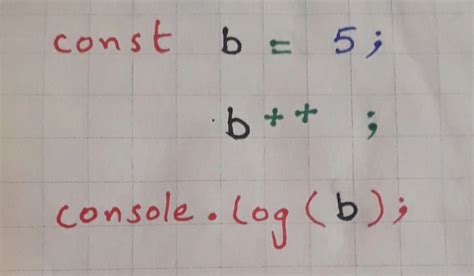 const b = 5;
b++ ;
console.log(b);